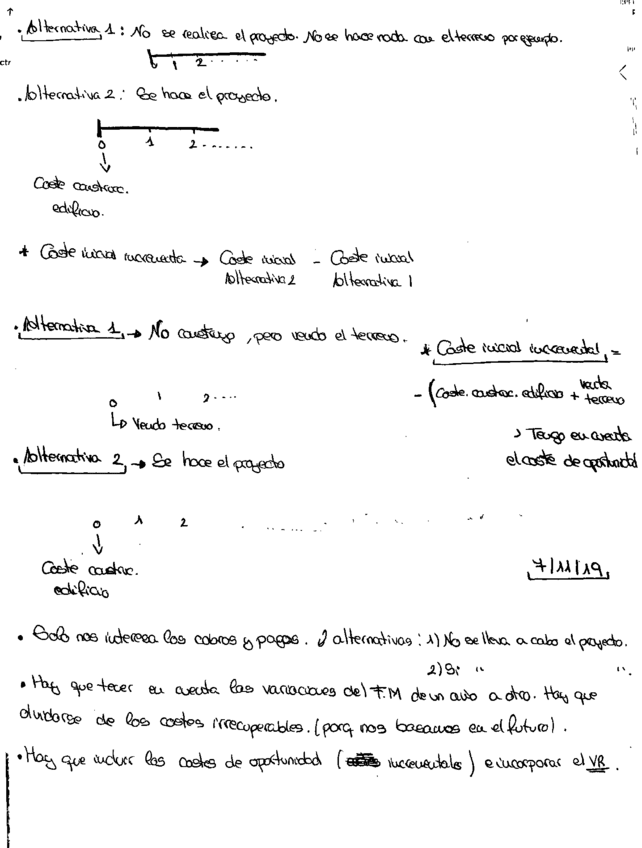 . Alternativa 1: No se realiza el proyecto. No se hace nada con el terreno por ejemplo.
1 2......
. Alternativa 2: Se hace el proyecto.
0 1 2.......
Coste construc.
edificio.
* Coste inicial incremental → Coste inicial - Coste inicial
Alternativa 2 Alternativa 1
. Alternativa 1, → No construyo, pero vendo el terreno.
* Coste inicial incremental, =
- (Coste. construc. edificio + venta
terreno
0 1 2....
↳ Vendo terreno.
Tengo en cuenta
el coste de oportunidad
. Alternativa 2, → Se hace el proyecto
0 1 2
Coste construc.
edificio
7/11/19
. Solo nos interesa los cobros y pagos. 2 alternativas: 1) No se lleva a cabo el proyecto.
2) Si " ".
. Hay que tener en cuenta las variaciones del F.M de un año a otro. Hay que
olvidarse de los costes irrecuperables. (porq nos basamos en el futuro).
. Hay que incluir los costes de oportunidad ( incrementales) e incorporar el VR.